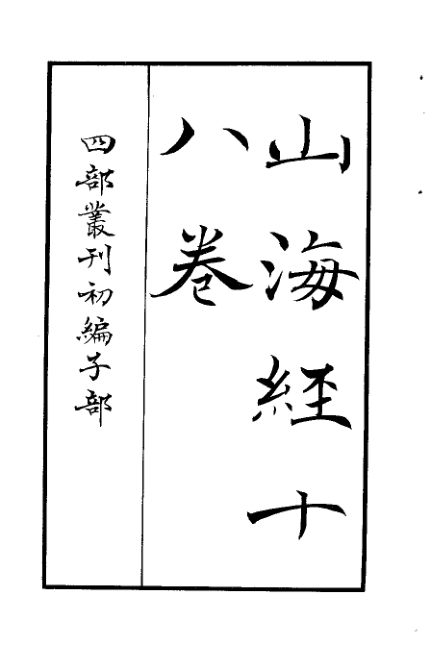 山海経十
八卷
四部叢刊初編子部